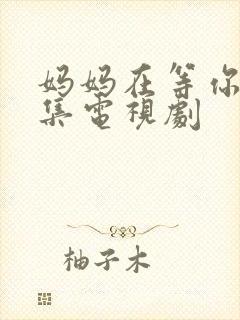 妈妈在等你
集电視劇
柚子木